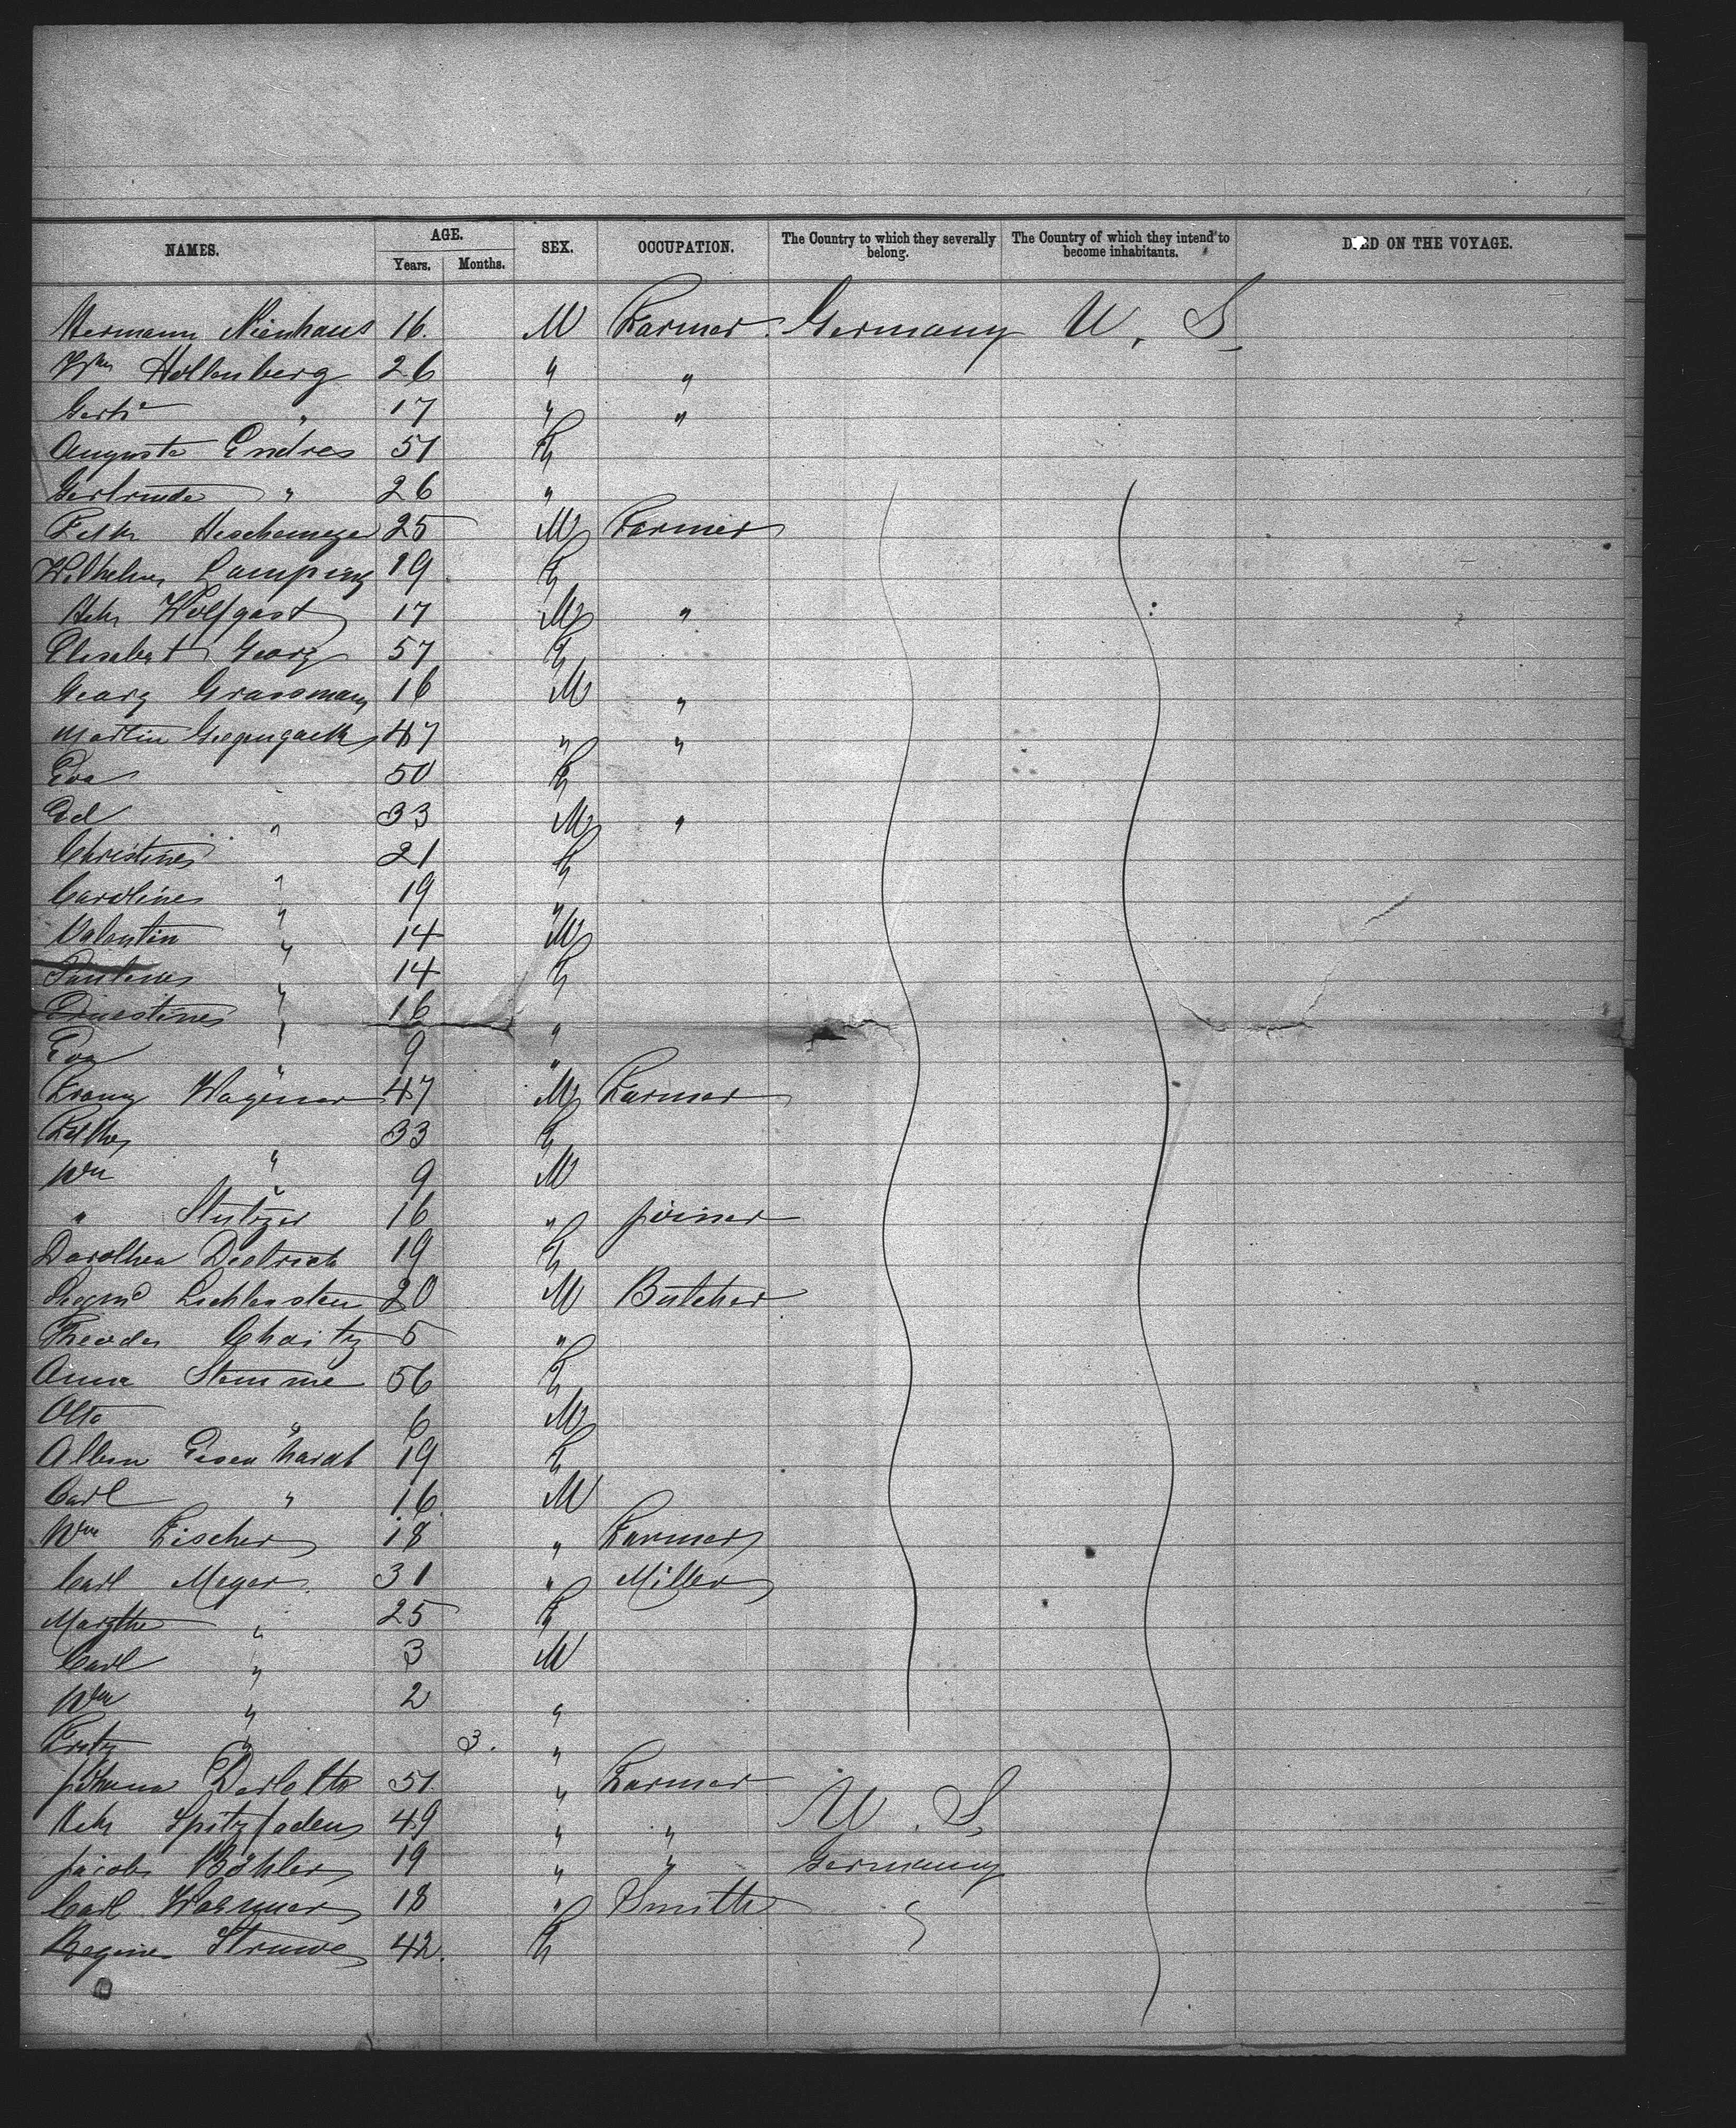 NAMES. AGE. Years. Months. SEX. OCCUPATION. The Country to which they severally belong. The Country of which they intend to become inhabitants. DIED ON THE VOYAGE.
Hermann Nienhaus 16. M Farmer. Germany U. S.
Wm Hollenberg 26 " "
17 " " "
Auguste Endres 51 F
Gertrude " 26 "
25 M Farmer
Wilhelm Lamping 19 F
Wolfgast 17 M "
Georg 57 F
Georg Grassmann 16 M "
Martin 47 " "
Eva 50 F
Ed " 33 M "
Christine 21 F
Caroline " 19 "
Valentin " 14 M
Pauline " 14 F
Ernestine " 16 "
Eva " 9 "
Franz Wagener 47 M Farmer
33 F
Wm " 9 M
" 16 " joiner
Dorothea Dietrich 19 F
Lichtenstein 20 M Butcher
Theodor 5 "
Anna Stumme 56 F
Otto " 6 M
Eisenhardt 19 F
Carl " 16 M
Wm Fischer 18 " Farmer
Carl Meyer 31 " Miller
" 25 F
Carl " 3 M
Wm " 2 "
Fritz " 3. "
51 " Farmer
Spitzfaden 49 " " U. S.
Jacob Böhler 19 " " Germany
Carl 18 " Smith "
Regine Struwe 42. F